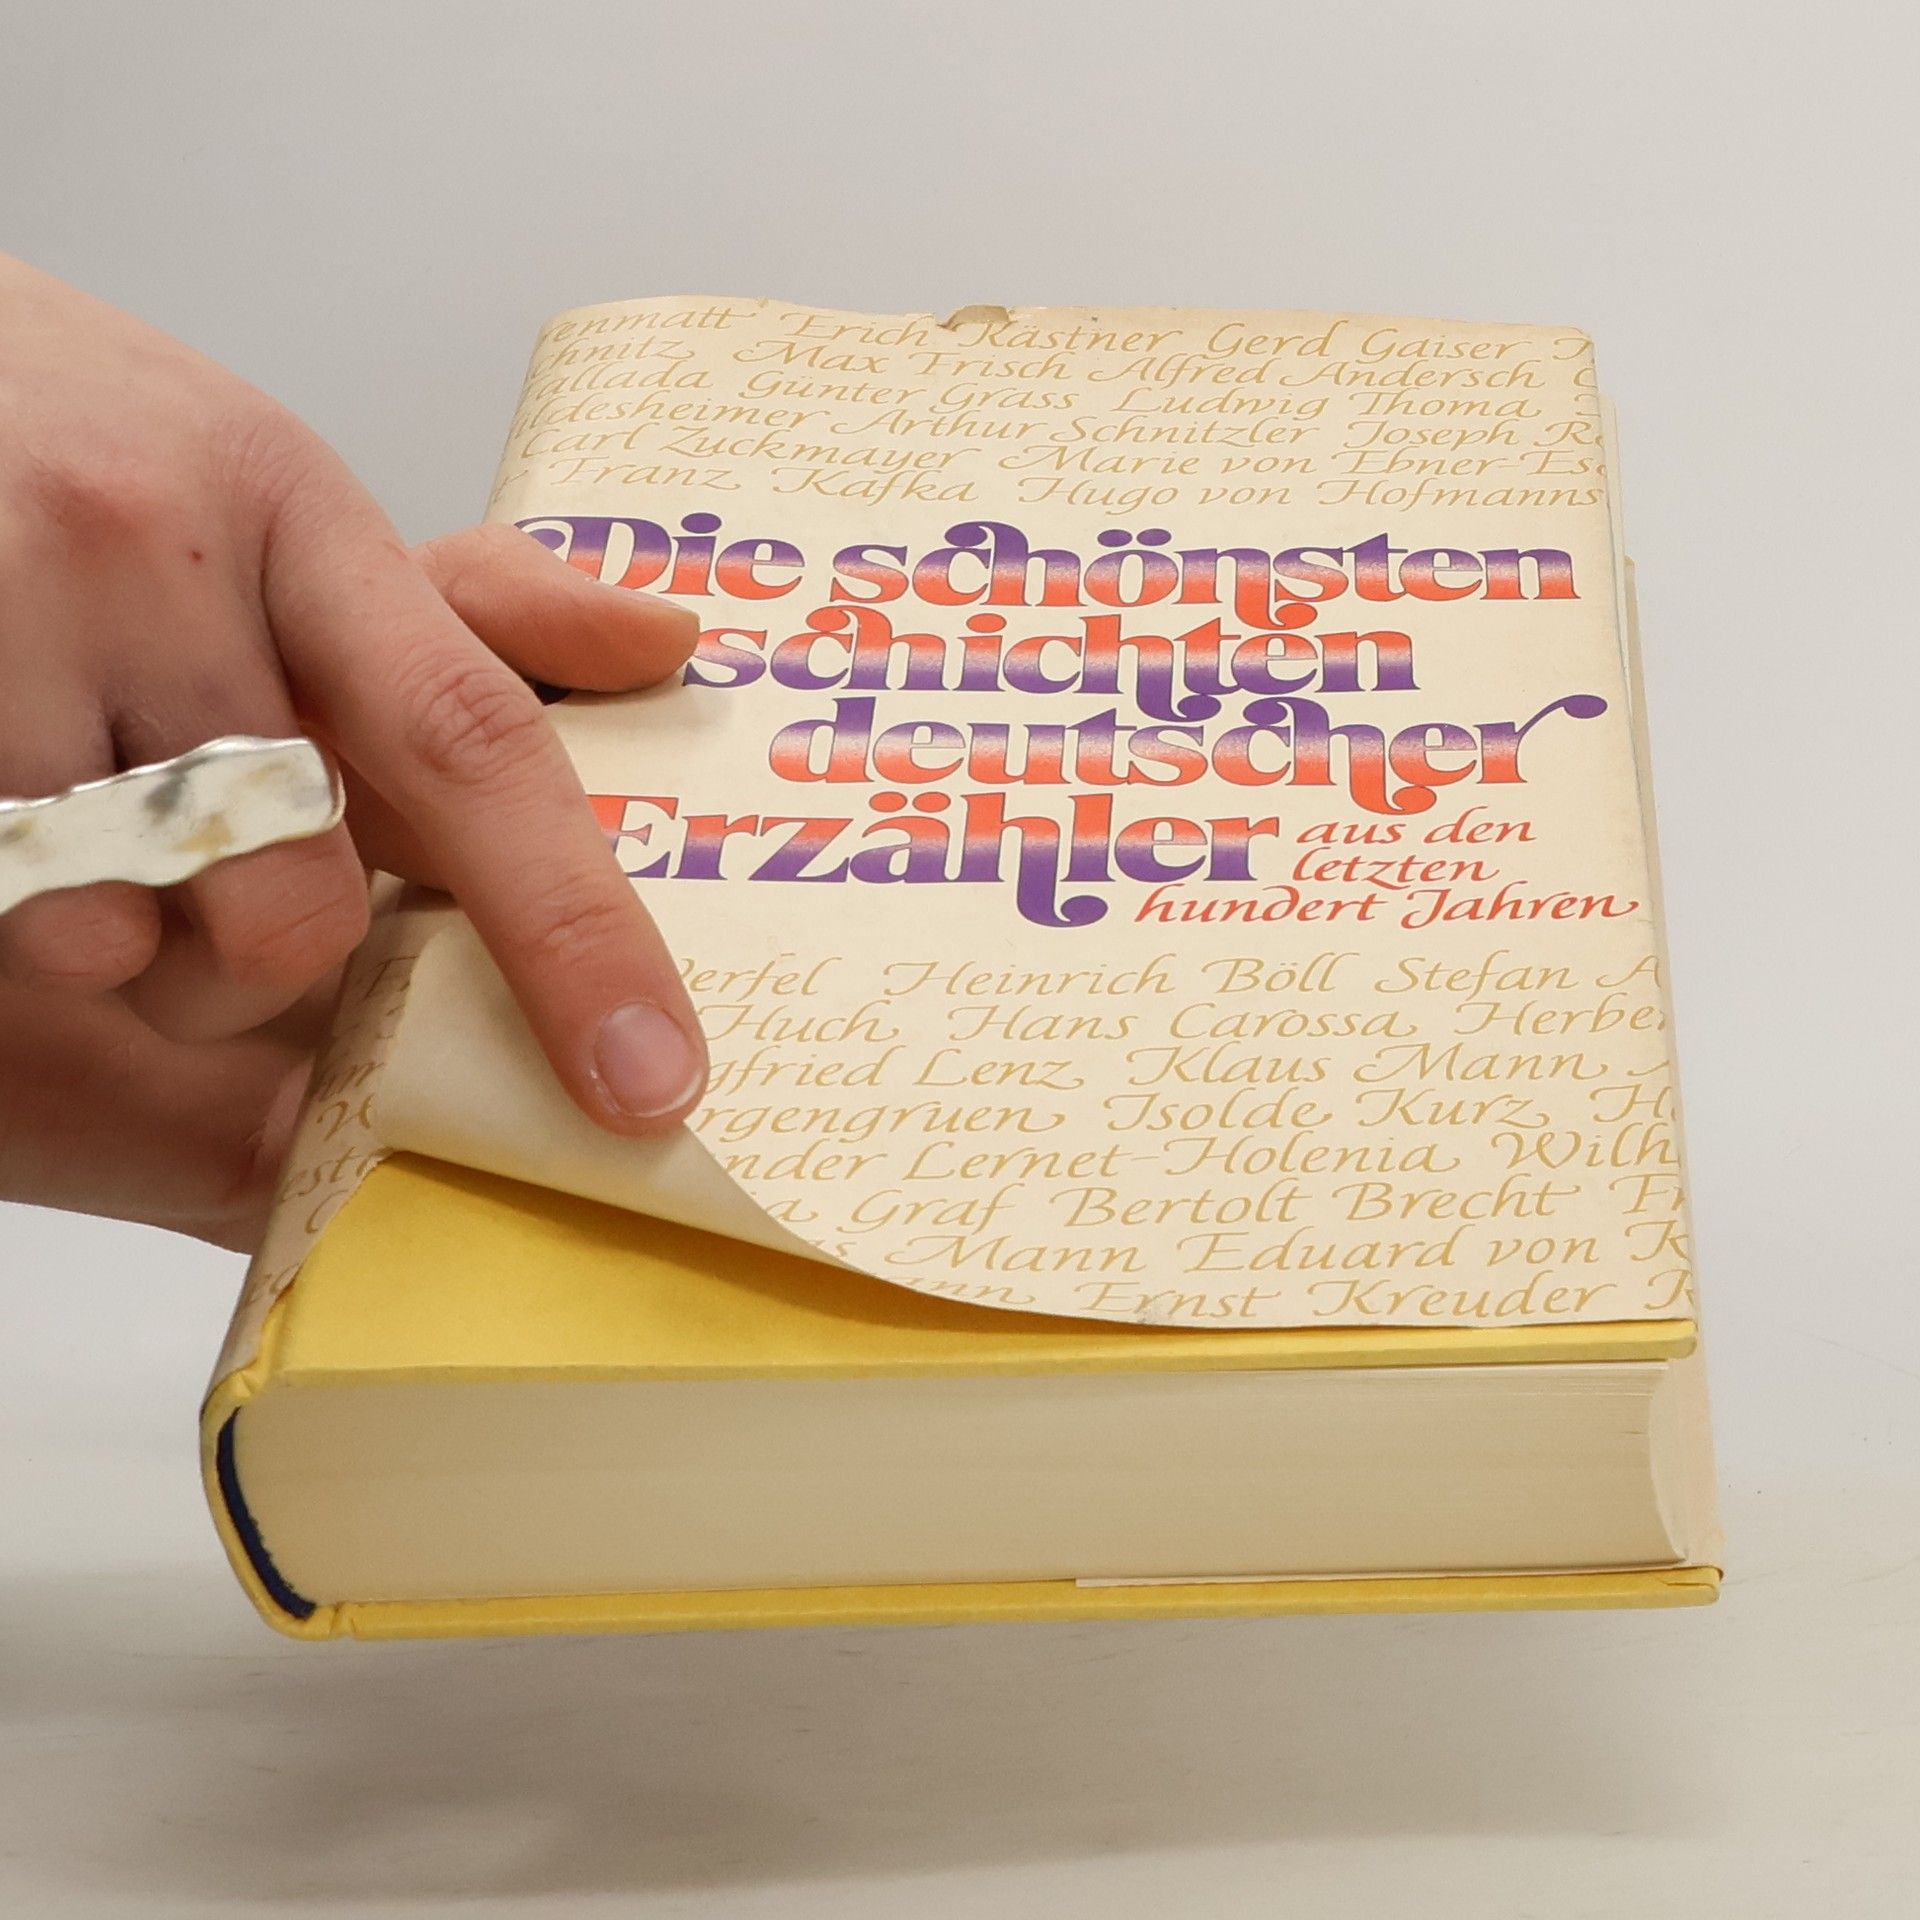 renmatt Erich Kästner Gerd Gaiser
chnitz Max Frisch Alfred Andersch
allada Günter Grass Ludwig Thoma
ildesheimer Arthur Schnitzler Joseph R
Carl Zuckmayer Marie von Ebner-Es
Franz Kafka Hugo von Hofmanns
Die schönsten
schichten
deutscher
Erzähler aus den
letzten
hundert Jahren
Werfel Heinrich Böll Stefan A
Huch Hans Carossa Herber
gfried Lenz Klaus Mann
rgengruen Isolde Kurz H
nder Lernet-Holenia Wilh
a Graf Bertolt Brecht Fr
as Mann Eduard von K
ann Ernst Kreuder R